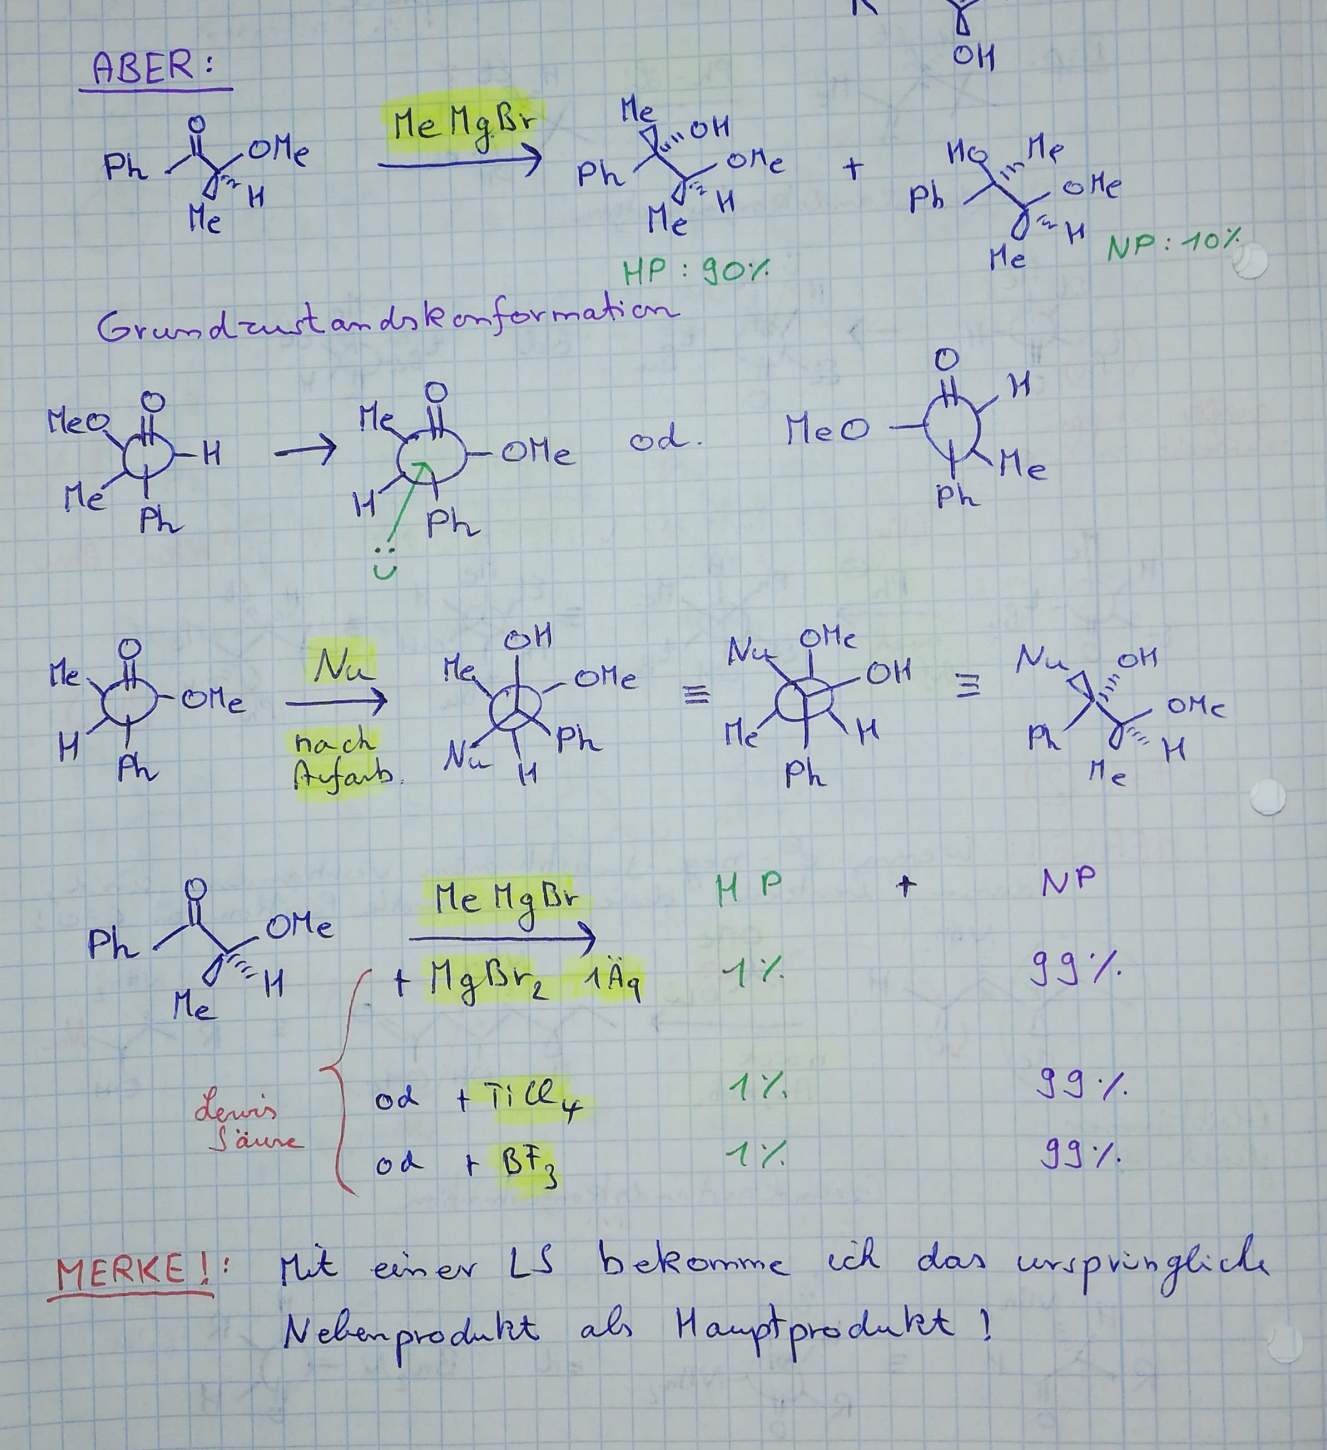 R
OH
ABER:
O
Ph
OMe
H
Me
MeMgBr
Me
OH
Ph
OMe
Me
H
+
HO
Me
Ph
OMe
H
Me
HP: 90%
NP: 10%
Grundzustandskonformation
MeO
O
H
Me
Ph
Me
O
OMe
H
Ph
od.
O
H
MeO
Me
Ph
Me
O
OMe
H
Ph
Nu
nach
Aufarb.
OH
Me
OMe
Nu
H
Ph
≡
Nu
OMe
OH
Me
H
Ph
≡
Nu
OH
OMe
Ph
H
Me
O
Ph
OMe
H
Me
MeMgBr
HP + NP
+ MgBr2 1Äq 1% 99%
od + TiCl4 1% 99%
od + BF3 1% 99%
Lewis
Säure
MERKE!: Mit einer LS bekomme ich das ursprüngliche
Nebenprodukt als Hauptprodukt!